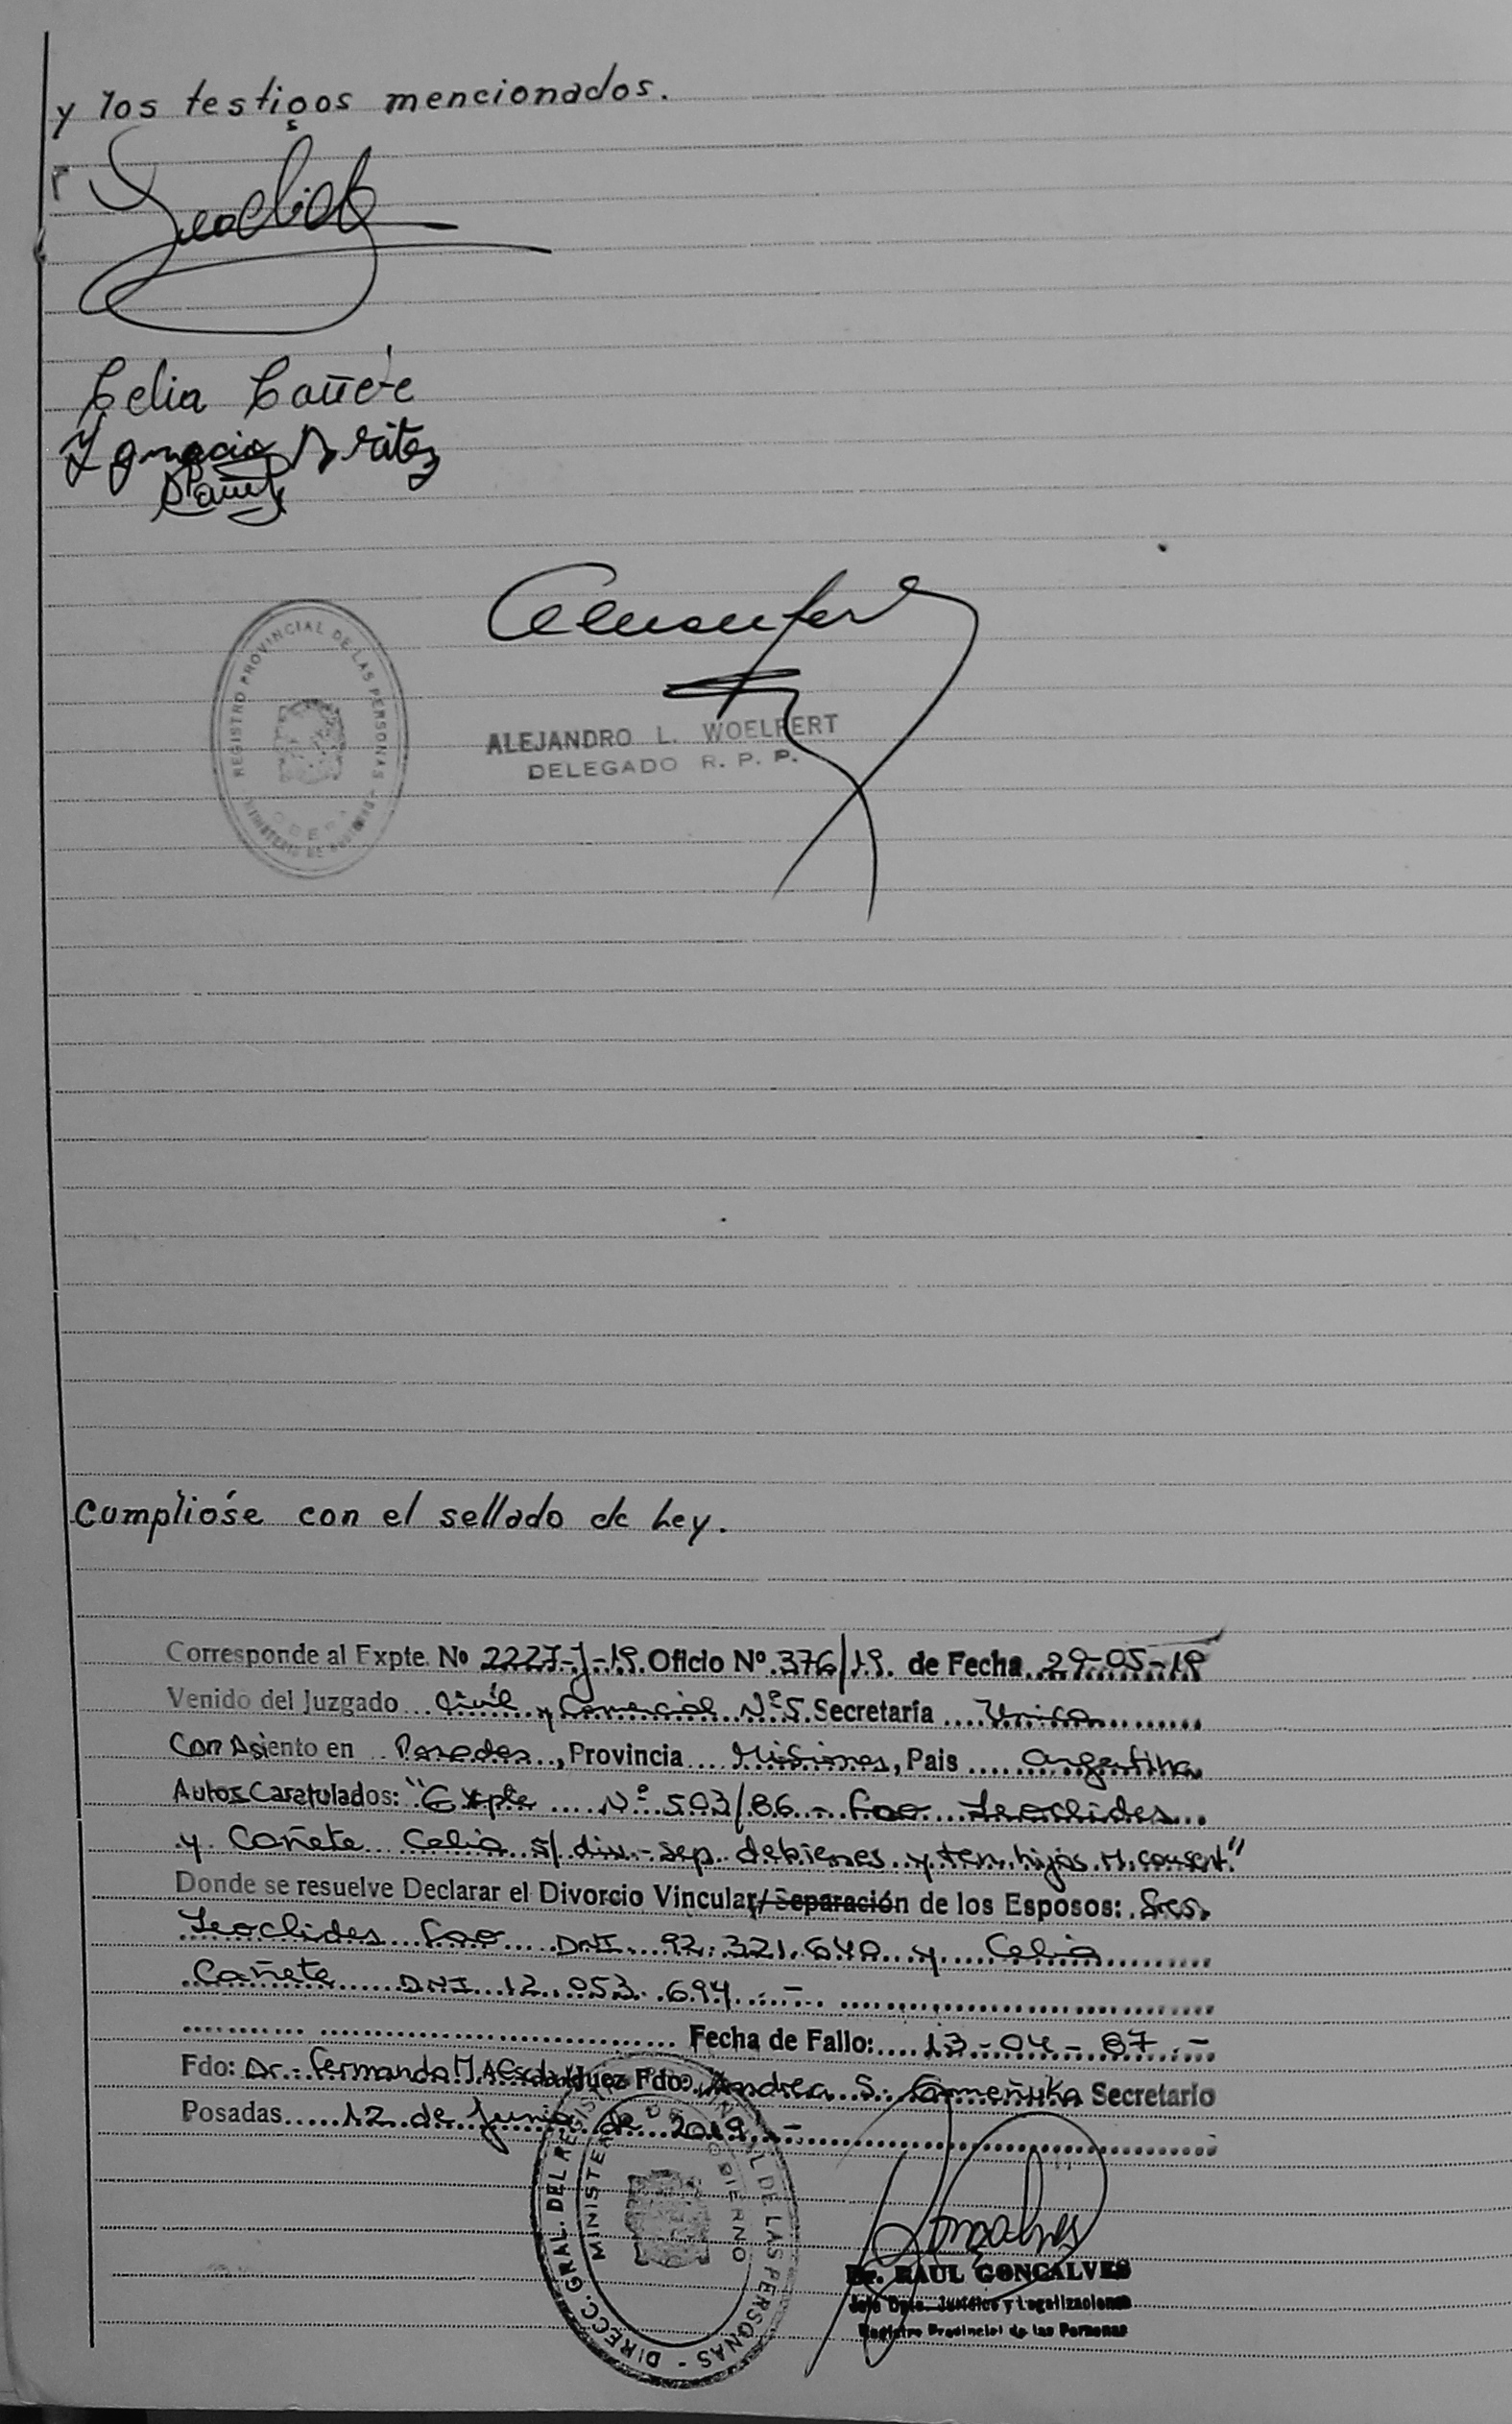 y los testigos mencionados.
Celia Cañete
Ignacio Brites
REGISTRO PROVINCIAL DE LAS PERSONAS
MINISTERIO DE
OBERA
ALEJANDRO L. WOELFERT
DELEGADO R. P. P.
Cumplióse con el sellado de Ley.
Corresponde al Expte. No 2227-J-19. Oficio Nº 376/19. de Fecha 29-05-19
Venido del Juzgado Civil y Comercial Nº 5. Secretaría Unica
Con Asiento en Posadas, Provincia Misiones, Pais Argentina
Autos Caratulados: "Expte Nº 503/86 - Foo Leoclides
y Cañete Celia s/ div.- sep. de bienes y ten. hijos M. consent."
Donde se resuelve Declarar el Divorcio Vincular/Separación de los Esposos: Sres.
Leoclides Foo DNI 92.321.640 y Celia
Cañete DNI 12.053.694.-
Fecha de Fallo: 13-04-87.-
Fdo: Dr. Fernando M. Juez Fdo: Andrea S. Secretario
Posadas 12 de Junio de 2019.-
DIRECC. GRAL. DEL REGISTRO PROVINCIAL DE LAS PERSONAS
MINISTERIO DE GOBIERNO
Dr. RAUL GONCALVES
Jefe Dpto. Jurídico y Legalizaciones
Registro Provincial de las Personas